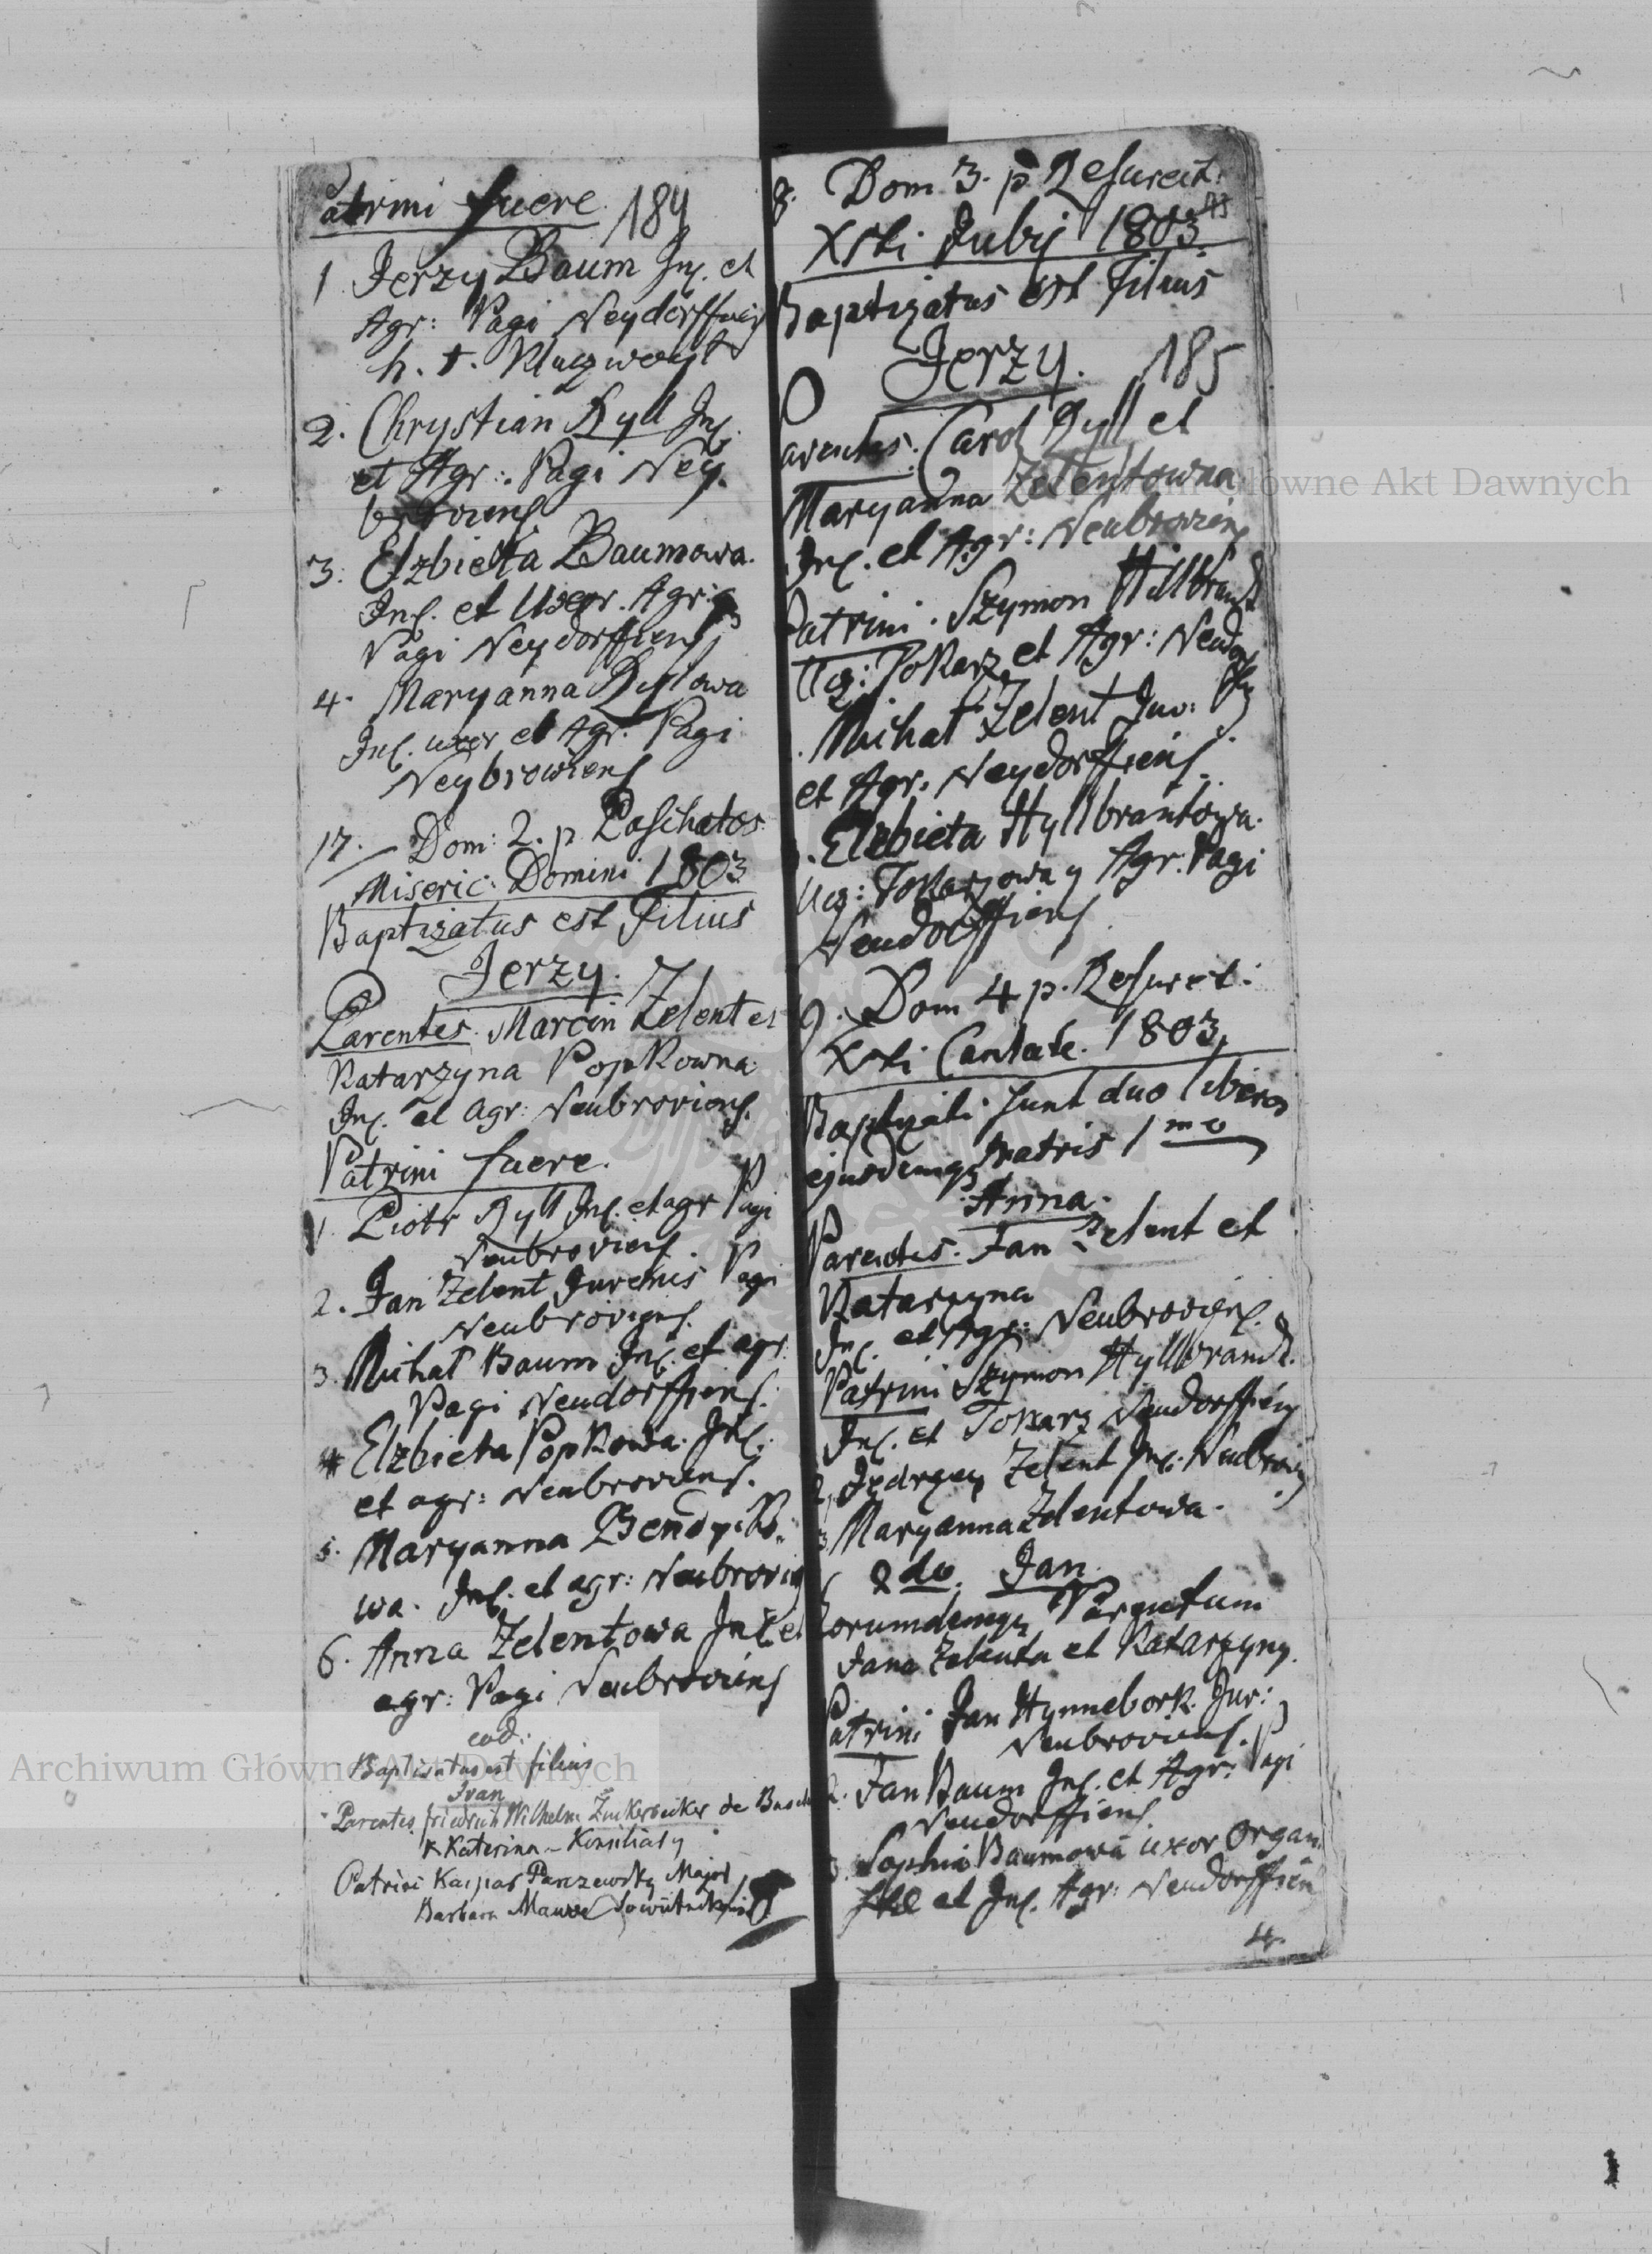 Patrini fuere. 184
1 Jerzy Baum Inc. et
Agr: Pagi Neydörffiens
h. t.
2. Chrystian Ryll Inc.
et Agr: Pagi Ney-
broviens
3. Elzbieta Baumowa.
Inc. et Uxor. Agr:
Pagi Neydorffiens
4. Maryanna Rylowa
Inc. uxor et Agr. Pagi
Neybrowiens
17. Dom: 2. p. Paschatos
Miseric: Domini 1803
Baptizatus est Filius
Jerzy.
Parentes. Marcin Zelent et
Katarzyna Popkowna
Inc. et agr: Neubroviens.
Patrini fuere.
1 Piotr Ryll Inc. et agr Pagi
Neubroviens.
2. Jan Zelent Juvenis Pagi
Neubroviens.
3. Michał Baum Inc. et agr:
Pagi Neudorffiens.
4 Elzbieta Popkowa. Inc.
et agr: Neubroviens.
5. Maryanna Bendyko-
wa. Inc. et agr: Neubrovien
6. Anna Zelentowa Inc. et
agr: Pagi Neubroviens
eod:
Baptisatus est filius
Ivan
Parentes. friedrich Wilhelm Zukerbecker de
Katerina
Patrini Kaspar Major
Barbara
8. Dom 3. p Resurect.
Xsti Jubil 1803
Baptizatus est Filius
Jerzy. 185
Parentes. Carol Ryll et
Maryanna Zelentowna
Inc. et Agr: Neubroviens
Patrini. Szymon Hillbrandt
Ucz: Tokarz et Agr: Neudorffiens
Michał Zelent Juv:
et Agr. Neydorffiens.
3. Elzbieta Hyllbrantowa.
Ucz: Tokarzowa y Agr. Pagi
Neudorffiens
9. Dom 4 p. Resurect:
Xsti Cantate. 1803
Baptizati sunt duo liberos
ejusdemq matris 1mo
Anna.
Parentes. Jan Zelent et
Katarzyna
Inc. et Agr: Neubroviens.
Patrini Szymon Hyllbrandt.
Inc. et Tokarz Neudorffiens
2. Jędrzey Zelent Inc. Neubroviens
3 Maryanna Zelentowa.
2do. Jan
Eorumdemq Parentum
Jana Zelenta et Katarzyny.
Patrini Jan Hynnebork. Juv:
Neubroviens.
2. Jan Baum Inc. et Agr: Pagi
Neudorffiens
3. Sophia Baumowa uxor Organi
et Inc. Agr: Neudorffien
4.
Archiwum Główne Akt Dawnych
Archiwum Główne Akt Dawnych